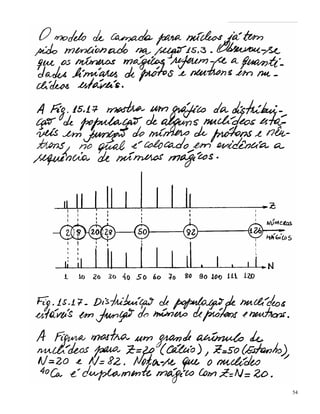 O modelo de camada para núcleos já tem
sido mencionado na seção 15.3. Observou-se
que os números mágicos referem-se a quanti-
dades limiares de prótons e neutrons em nu-
clídeos estáveis.
A Fig. 15.17 mostra um gráfico da distribui-
ção de população de alguns nuclídeos está-
veis em função do número de prótons e nêu-
trons, no qual é colocado em evidência a
sequência de números mágicos.
Z
2 8 20 28 50 82 126
NÚMEROS
MÁGICOS
N
1 10 20 30 40 50 60 70 80 90 100 111 120
Fig. 15.17- Distribuição de população de nuclídeos
estáveis em função do número de prótons e neutrons.
A Figura mostra um grande acúmulo de
nuclídeos para Z=20 (Cálcio), Z=50 (Estanho),
N=20 e N=82. Nota-se que o nuclídeo
40Ca é duplamente mágico com Z=N=20.
54